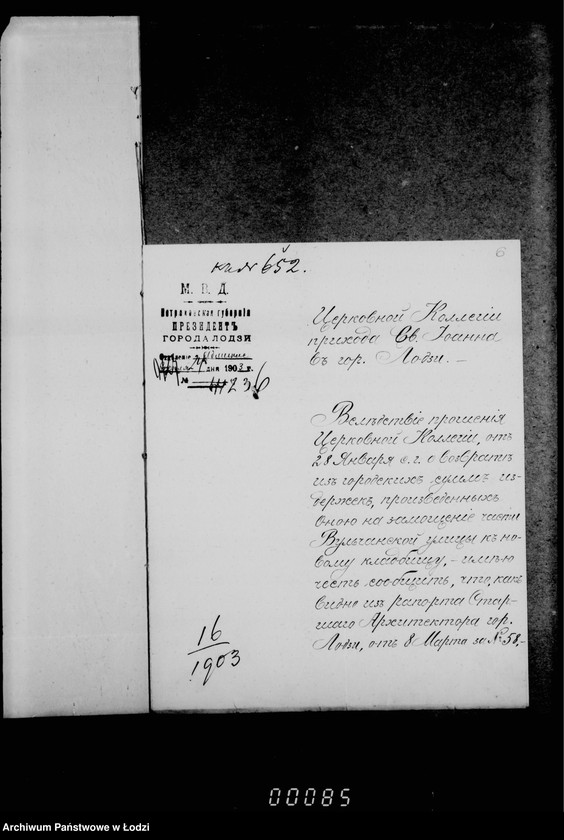 6
к. № 652.
М. В. Д.
Петроковская губернія
ПРЕЗИДЕНТЪ
ГОРОДА ЛОДЗИ
Отдѣленіе
дня 1903 г.
№ 4236
Церковной Коллегіи
прихода Св. Іоанна
въ гор. Лодзи. —
Вслѣдствіе прошенія
Церковной Коллегіи, отъ
28 Января с. г. о возвратѣ
изъ городскихъ суммъ из-
держекъ, произведенныхъ
оною на замощеніе части
Вульчанской улицы къ но-
вому кладбищу, – имѣю
честь сообщить, что, какъ
видно изъ рапорта Стар-
шаго Архитектора гор.
Лодзи, отъ 8 Марта за № 58, –
16
1903
00085
Archiwum Państwowe w Łodzi